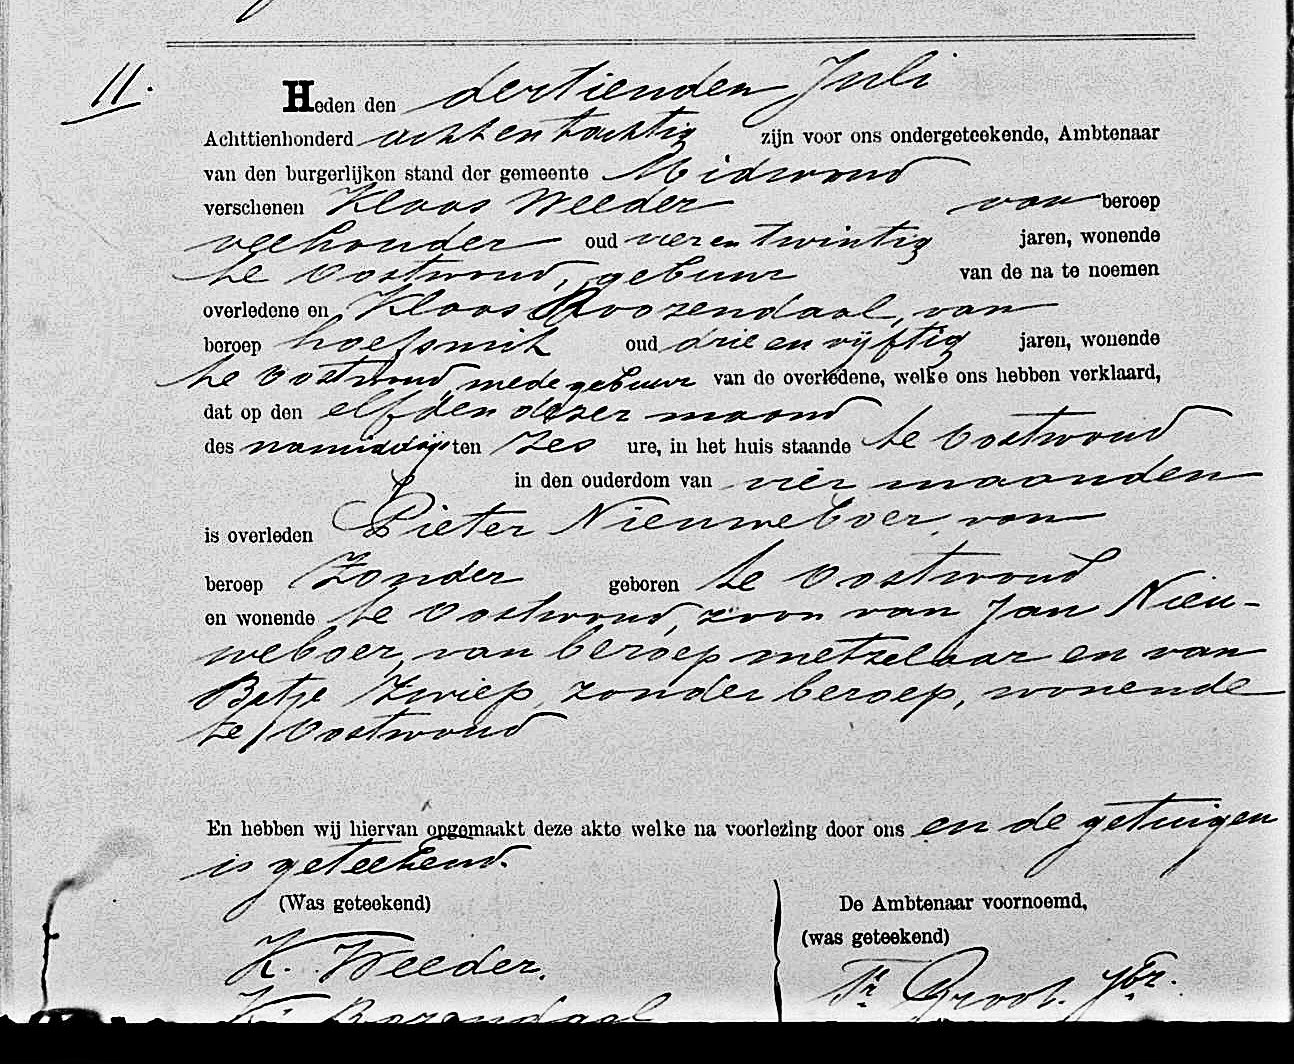 11.
Heden den dertienden Juli
Achttienhonderd acht en tachtig zijn voor ons ondergeteekende, Ambtenaar
van den burgerlijken stand der gemeente Midwoud
verschenen Klaas Weeder van beroep
veehouder oud vier en twintig jaren, wonende
te Oostwoud, gebuur van de na te noemen
overledene en Klaas Roozendaal, van
beroep hoefsmit oud drie en vijftig jaren, wonende
te Oostwoud, mede gebuur van de overledene, welke ons hebben verklaard,
dat op den elfden dezer maand
des namiddags ten zes ure, in het huis staande te Oostwoud
in den ouderdom van vier maanden
is overleden Pieter Nieuweboer van
beroep Zonder geboren te Oostwoud
en wonende te Oostwoud, zoon van Jan Nieu-
weboer, van beroep metzelaar en van
Betje Zwiep, zonder beroep, wonende
te Oostwoud
En hebben wij hiervan opgemaakt deze akte welke na voorlezing door ons en de getuigen
is geteekend.
(Was geteekend) De Ambtenaar voornoemd,
(was geteekend)
K. Weeder. Pr Groot. Jbz.
K. Rozendaal